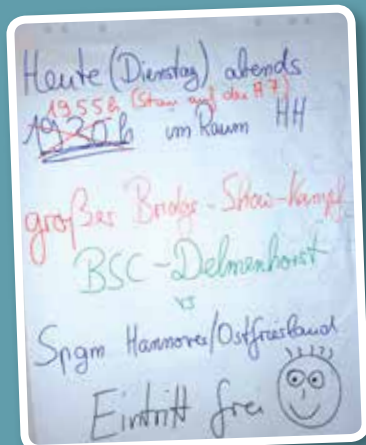 Heute (Dienstag) abends
19⁵⁵h (Stau auf der A7)
19³⁰h im Raum HH
großer Bridge-Show-Kampf
BSC-Delmenhorst
vs
Spgm Hannover/Ostfriesland
Eintritt frei